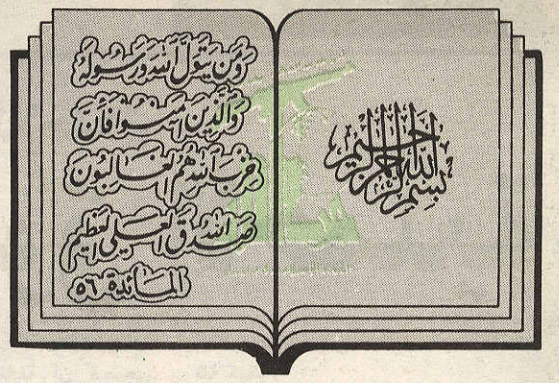 بسم الله الرحمن الرحيم
وَمَن يَتَوَلَّ اللهَ وَرَسُولَهُ
وَالَّذِينَ آمَنُوا فَإِنَّ
حِزْبَ اللهِ هُمُ الغَالِبُونَ
صَدَقَ اللهُ العَلِيُّ العَظِيم
المائدة ٥٦